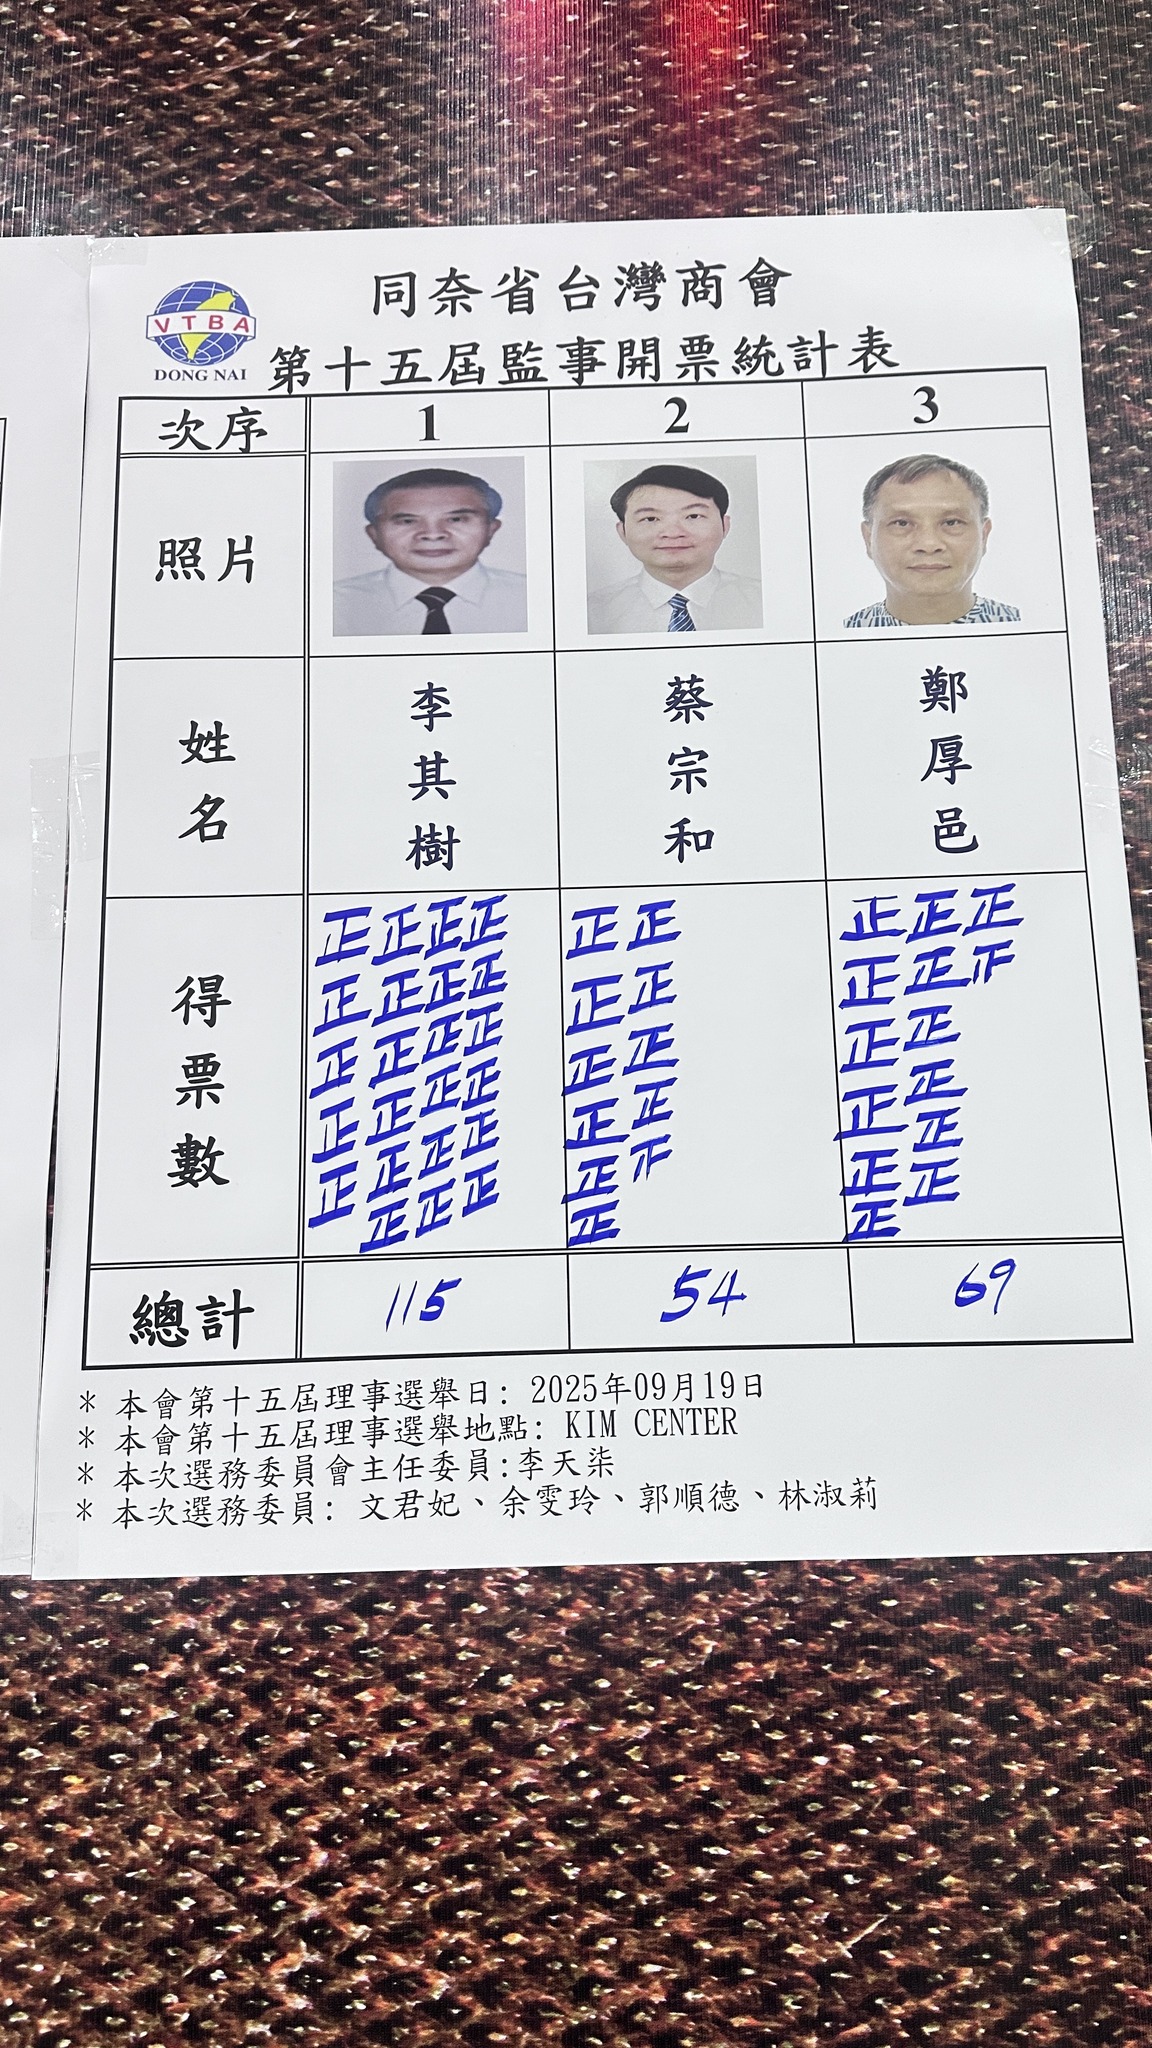 同奈省台灣商會
VTBA
DONG NAI
第十五屆監事開票統計表
次序 1 2 3
照片
姓名 李其樹 蔡宗和 鄭厚邑
得票數
正正正正 正正 正正正
正正正正 正正 正正正
正正正正 正正 正正
正正正正 正正 正正
正正正正 正 正正
正正正 正 正正
總計 115 54 69
* 本會第十五屆理事選舉日: 2025年09月19日
* 本會第十五屆理事選舉地點: KIM CENTER
* 本次選務委員會主任委員:李天柒
* 本次選務委員: 文君妃、余雯玲、郭順德、林淑莉